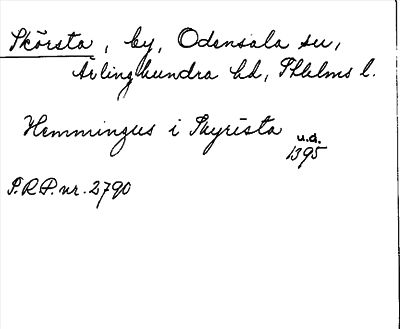 Skörsta, by, Odensala sn,
Ärlinghundra hd, Sthlms l.
Hemmingus i Skyrista u.d.
1395
S.R.P. nr. 2790